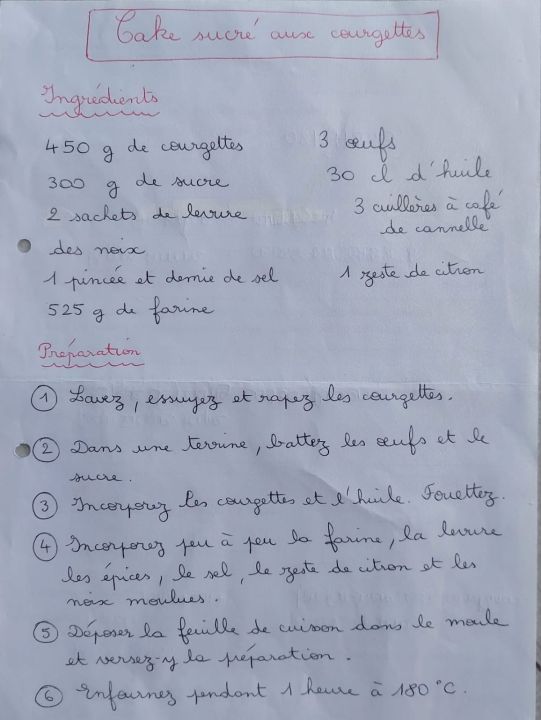 Cake sucré aux courgettes
Ingrédients
450 g de courgettes
3 œufs
300 g de sucre
30 cl d'huile
2 sachets de levure
3 cuillères à café
de cannelle
des noix
1 pincée et demie de sel
1 zeste de citron
525 g de farine
Préparation
1 Lavez, essuyez et rapez les courgettes.
2 Dans une terrine, battez les œufs et le
sucre.
3 Incorporez les courgettes et l'huile. Fouettez.
4 Incorporez peu à peu la farine, la levure
les épices, le sel, le zeste de citron et les
noix moulues.
5 Déposer la feuille de cuisson dans le moule
et versez-y la préparation.
6 Enfournez pendant 1 heure à 180°C.